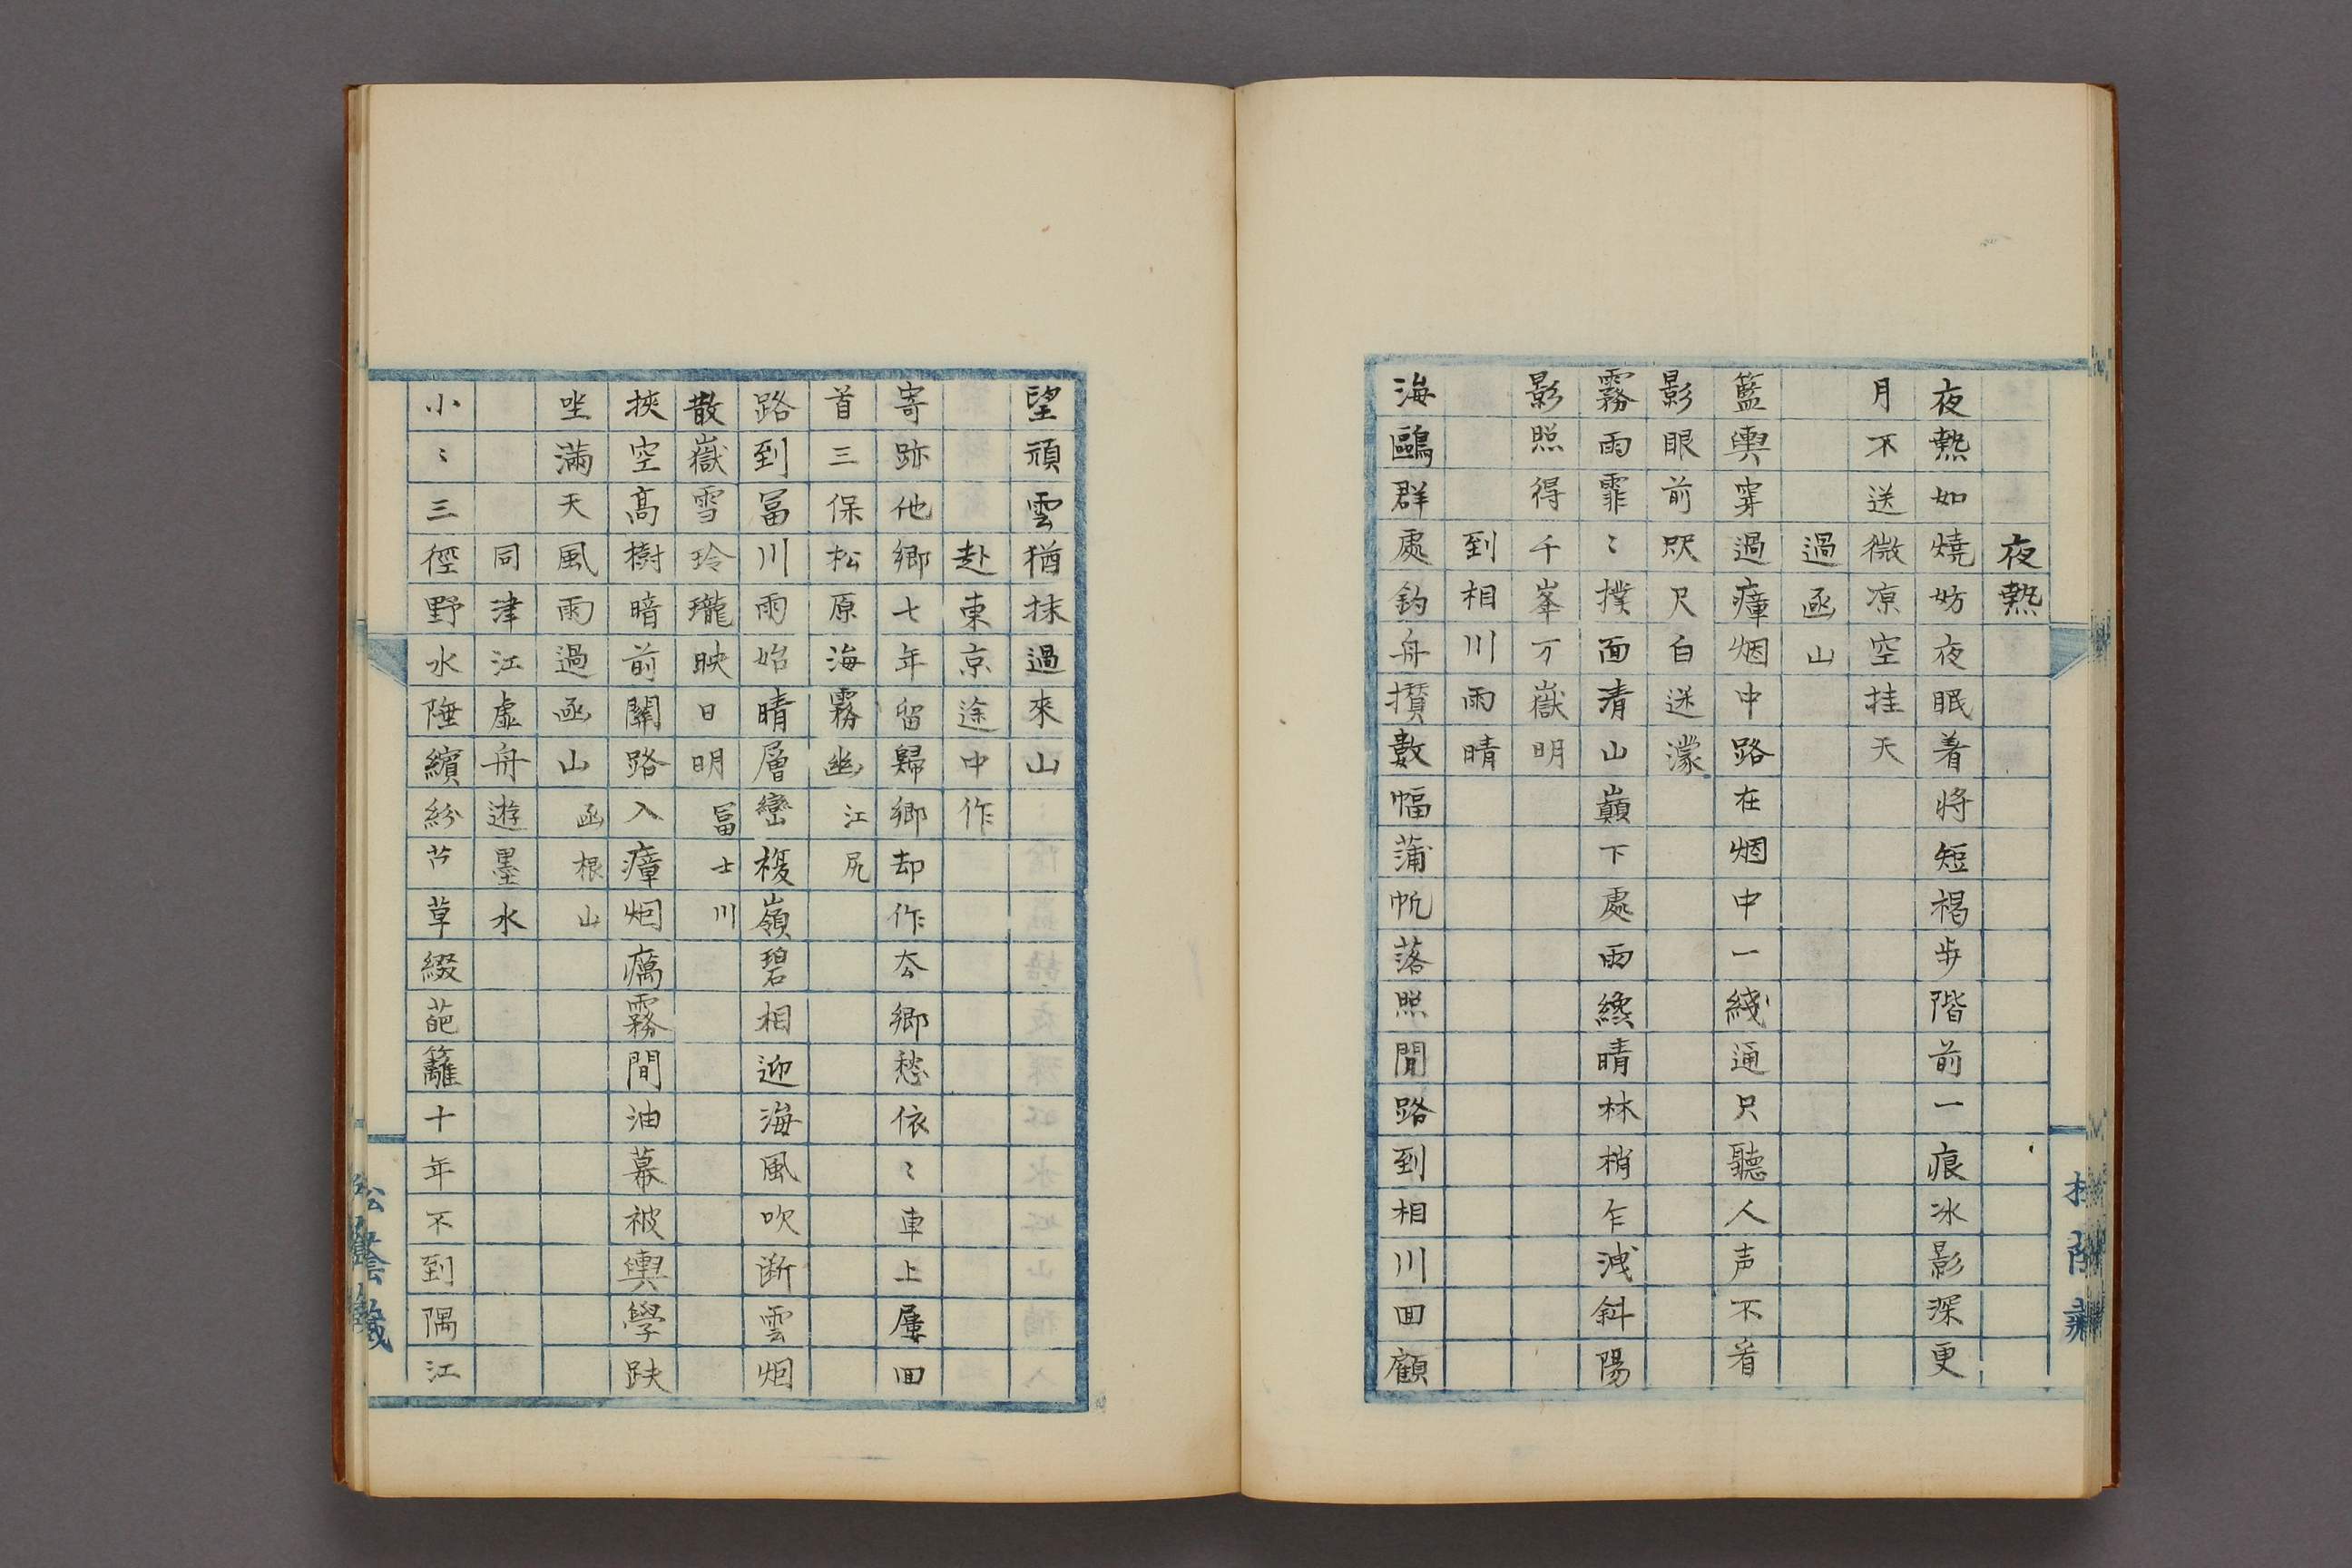 夜熱
夜熱如燒妨夜眠着將短褐步階前一痕冰影深更
月不送微凉空挂天
過凾山
籃輿穿過瘴烟中路在烟中一綫通只聽人声不看
影眼前咫尺白迷濛
霧雨霏〻撲面清山巓下處雨纔晴林梢乍洩斜陽
影照得千峯万嶽明
到相川雨晴
海鷗群處釣舟攢數幅蒲帆落照閒路到相川回顧
望頑雲猶抹過來山
赴東京途中作
寄跡他鄉七年留歸鄉却作夲鄉愁依〻車上屢回
首三保松原海霧幽 江尻
路到冨川雨始晴層巒複嶺碧相迎海風吹断雲烟
散嶽雪玲瓏映日明 冨士川
挾空高樹暗前關路入瘴烟癘霧間油幕被輿學趺
坐滿天風雨過凾山 凾根山
同津江虛舟遊墨水
小〻三徑野水陲繽紛芦草綴葩籬十年不到隅江
松陰